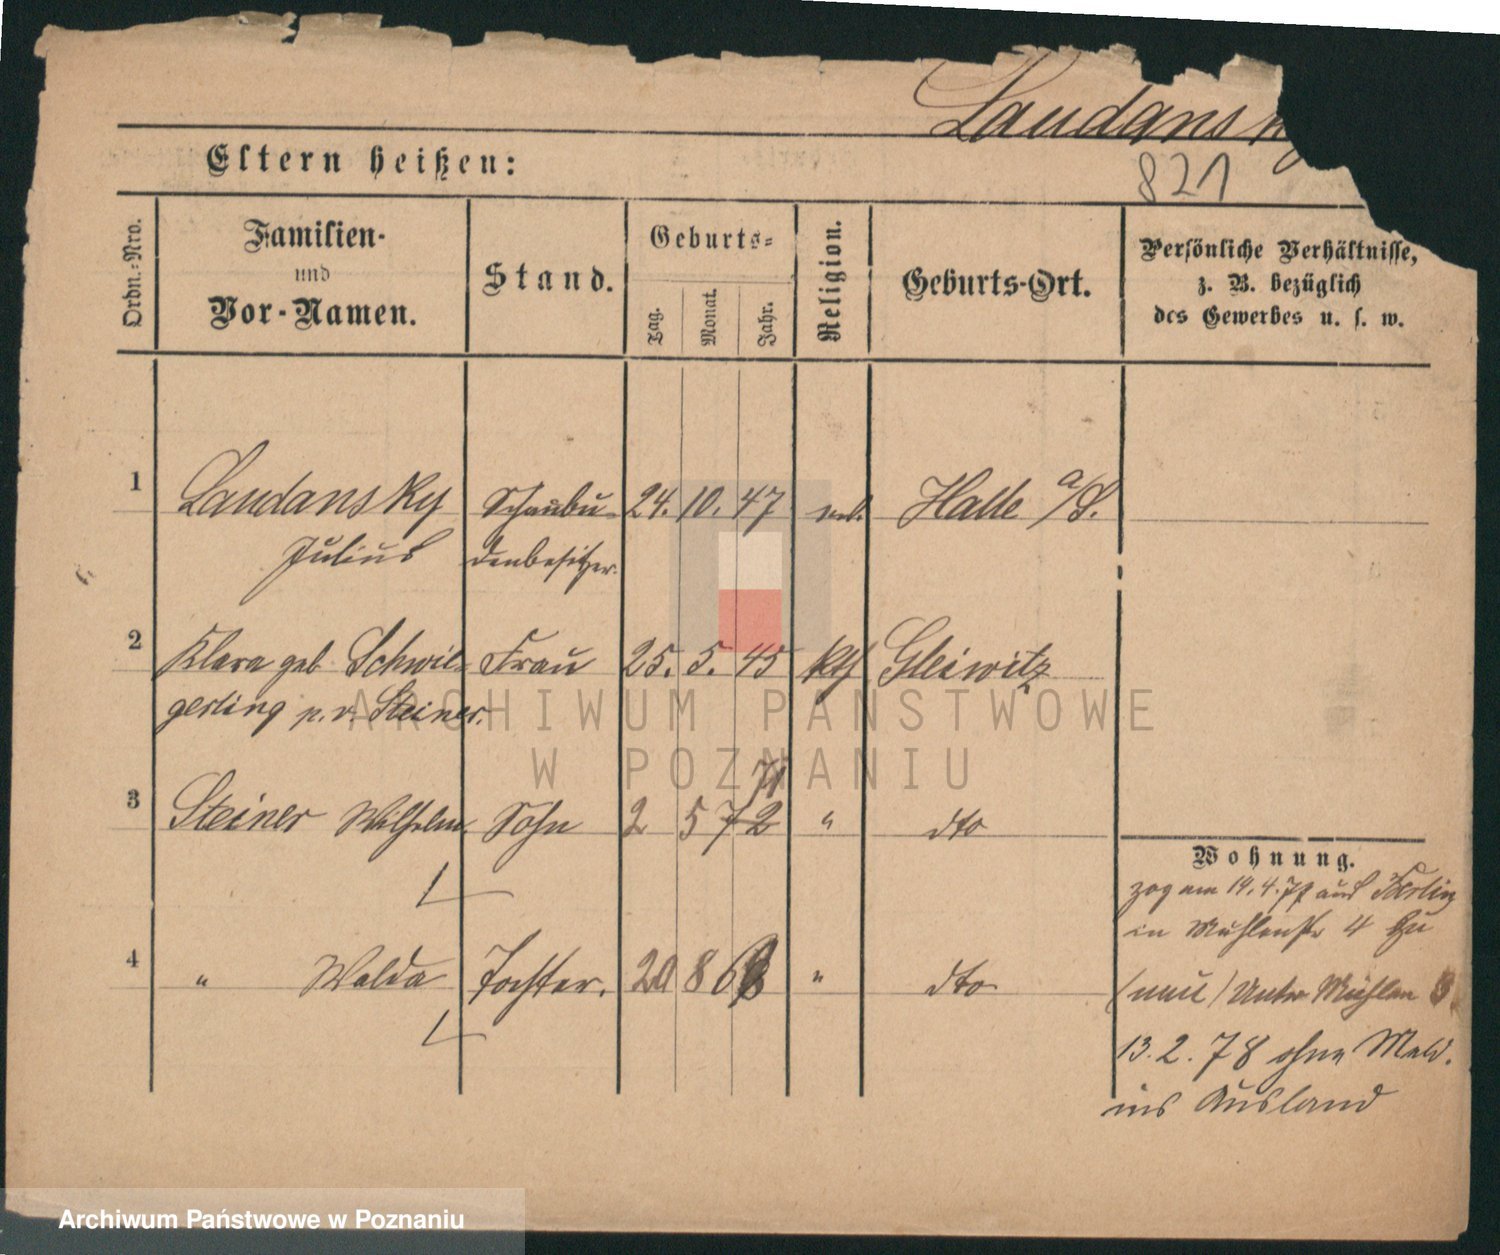 Laudansky
821
Eltern heißen:
Ordn.-Nro.
Familien-
und
Vor-Namen.
Stand.
Geburts-
Tag.
Monat.
Jahr.
Religion.
Geburts-Ort.
Persönliche Verhältnisse,
z. B. bezüglich
des Gewerbes u. s. w.
1 Laudansky Schaubu- 24. 10. 47 Halle a/S.
Julius denbesitzer
2 Klara geb Schwil- Frau 25. 5. 45 kth Gleiwitz
gerling p. v. Steiner.
71
3 Steiner Wilhelm Sohn 2 5 72 " dto
4 " Walda Tochter. 20 8 68 " dto
Wohnung.
zog am 14. 4. 77 aus Berlin
in Mühlenstr 4 zu
(neue) Unter Mühlen
13. 2. 78 ohne Meld.
ins Ausland
ARCHIWUM PAŃSTWOWE
W POZNANIU
Archiwum Państwowe w Poznaniu